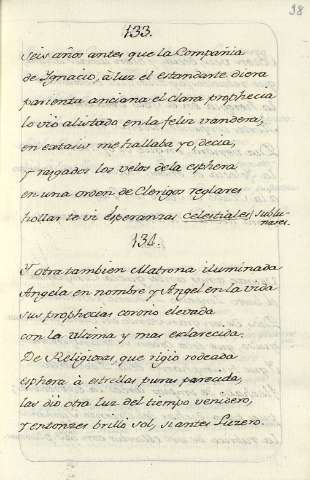 38
133.
Seis años antes que la Compañia
de Ignacio, à luz el estandarte diera
parienta anciana el clara prophecia
lo vió alistado en la feliz vandera,
en extasis me hallaba yo, decia,
y rasgados los velos de la esphera
en una orden de Clerigos reglares
hollar te vi Esperanzas celestiales, sublu-
nares.
134.
Y otra tambien Matrona iluminada
Angela en nombre y Angel en la vida
sus prophecias coronó elevada
con la ultima y mas esclarecida.
De Religiosas, que rigio rodeada
esphera à estrellas puras parecida,
las dio otra luz del tiempo venidero,
y entonzes brilló sol, si antes Luzero.